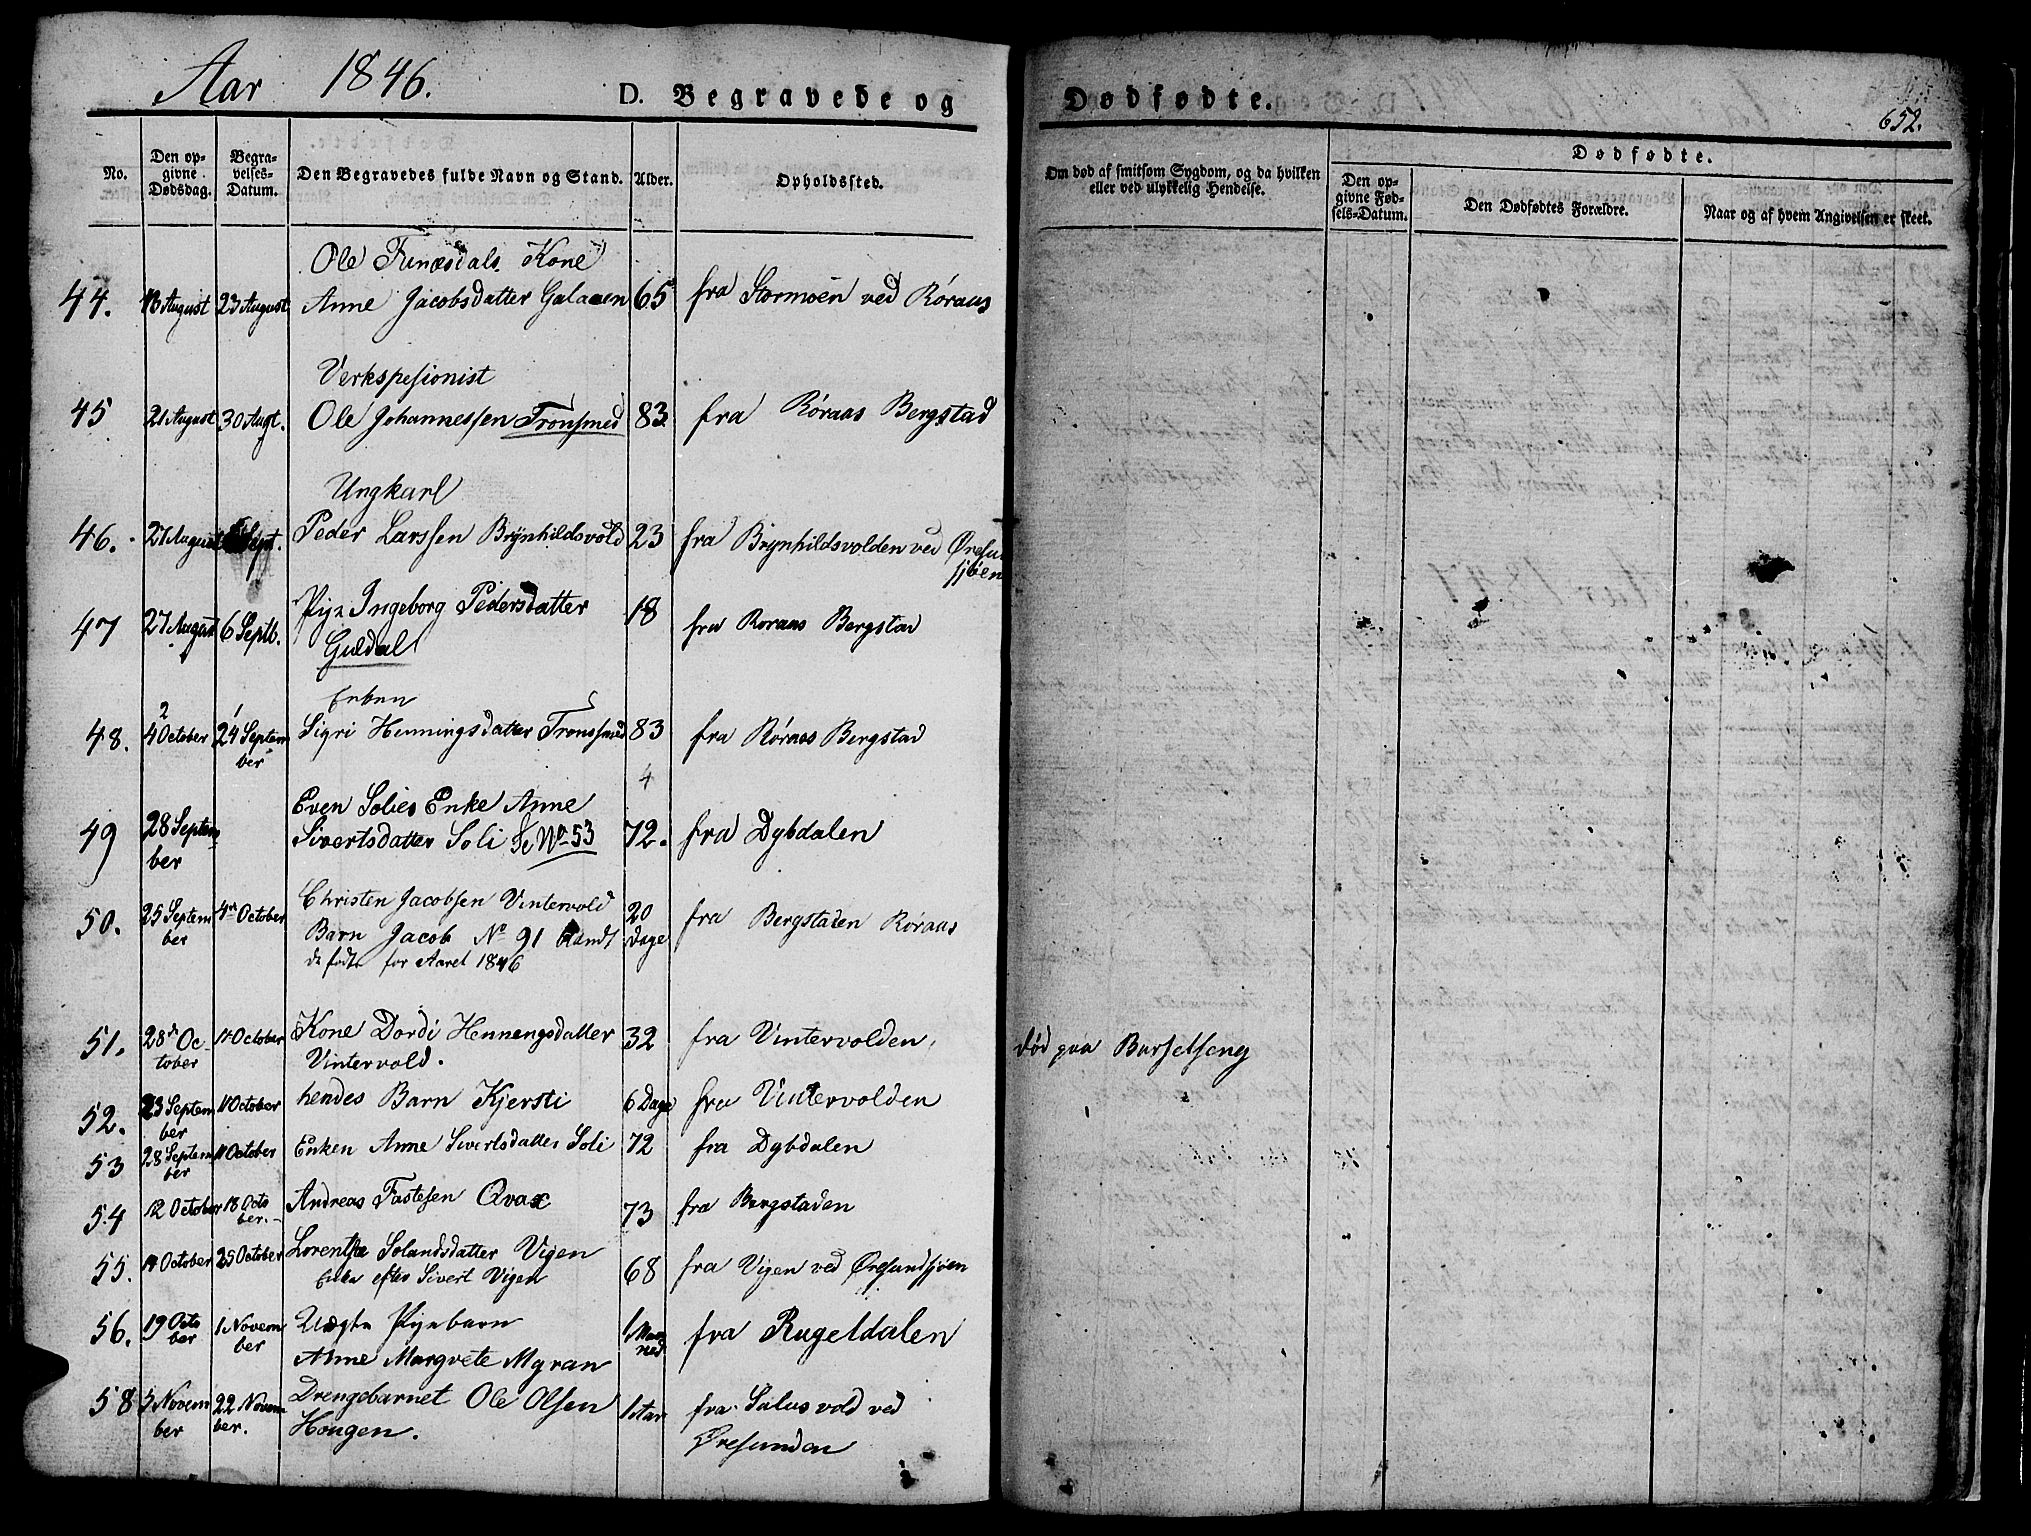 Aar 1846. D. Begravede og Dødfødte.
652.
No. Den opgivne Dødsdag. Begravelses-Datum. Den Begravedes fulde Navn og Stand. Alder. Opholdssted. Om død af smitsom Sygdom, og da hvilken eller ved ulykkelig Hendelse. Dødfødte.
Den opgivne Fødsels-Datum. Den Dødfødtes Forældre. Naar og af hvem Angivelsen er skeet.
Ole Funæsdals Kone
44. 18 August 23 August Anne Jacobsdatter Galaaen 65 fra Stormoen ved Røraas
Verkspesionist
45 21 August 30 Augt. Ole Johannessen Tronsmed 83 fra Røraas Bergstad
Ungkarl
46. 27 August Sept. Peder Larssen Brynhildsvold 23 fra Brynhildsvolden ved Øresu
sjøen
47 27 August 6 Septb. Pige Ingeborg Pedersdatter 18 fra Roraas Bergstad
Guldal
Enken
48. October 24 Septem Sigri Henningsdatter Tronsmed 83 fra Røraas Bergstad
ber
4
Even Solies Enke Anne
49 28 Septem Sivertsdatter Soli Se No 53 72. fra Dybdalen
ber
50. 25 Septem 4de October Christen Jacobsen Vintervold 20 fra Bergstaden Røraas
ber Barn Jacob No 91 blandt Dage
de fødte for Aaret 1846
51. 28de Oc- 11 October Kone Dordi Henningsdatter 32 fra Vintervolden død paa Barselseng
tober Vintervold.
52. 23 Septem 11 October hendes Barn Kjersti 6 Dage fra Vintervolden
ber
53 28 Septem 11 October Enken Anne Sivertsdatter Soli 72 fra Dybdalen
ber
54 12 October 18 Octo Andreas Fastesen Qvax 73 fra Bergstaden
ber.
55. 14 October 25 October Lorentse Solandsdatter Vigen 68 fra Vigen ved Øresundsjøen
Enke efter Sivert Vigen
56. 19 Octo 1 Novem Uægte Pigebarn 1 Maa fra Rugeldalen
ber ber Anne Margrete Myran ned
58 5 Novem 22 Novem Drengebarnet Ole Olsen 1 Aar fra Salusvold ved
ber ber. Hougen. Øresunden